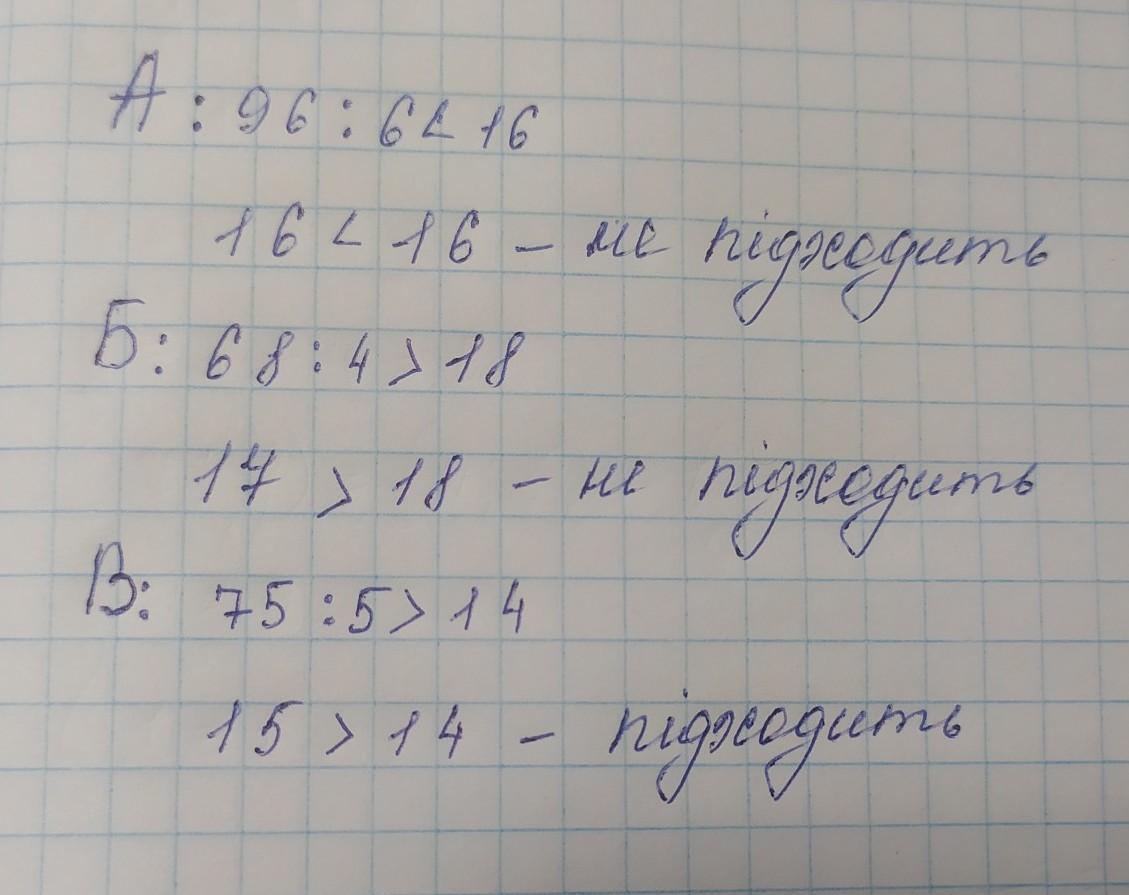 А: 96 : 6 < 16
16 < 16 – не підходить
Б: 68 : 4 > 18
17 > 18 – не підходить
В: 75 : 5 > 14
15 > 14 – підходить